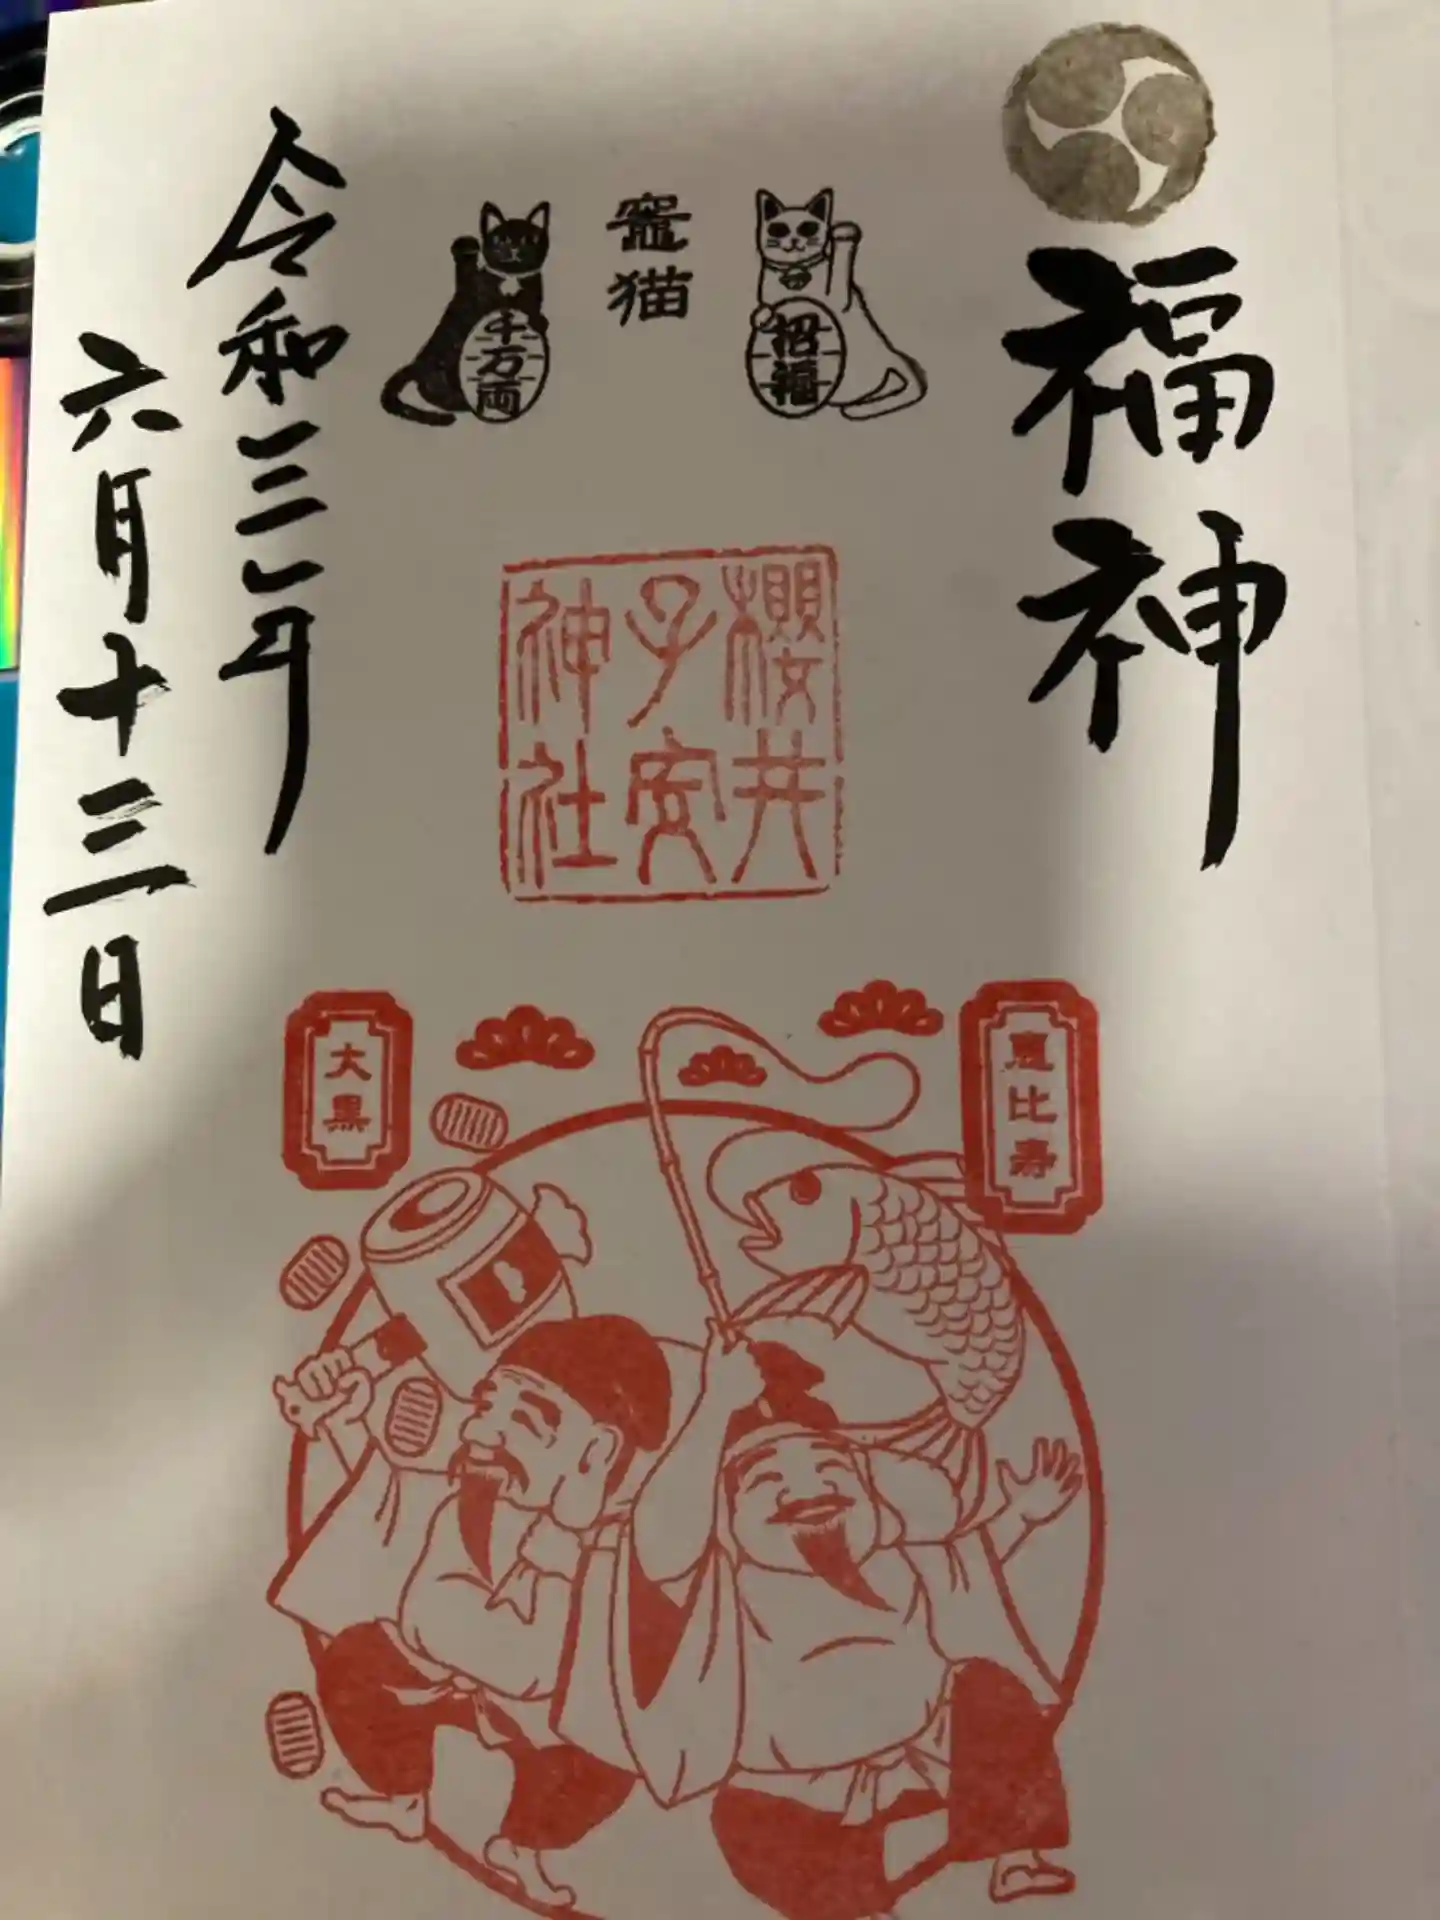 福神
招福
竈猫
千万両
櫻井
子安
神社
令和三年
六月十三日
恵比寿
大黒